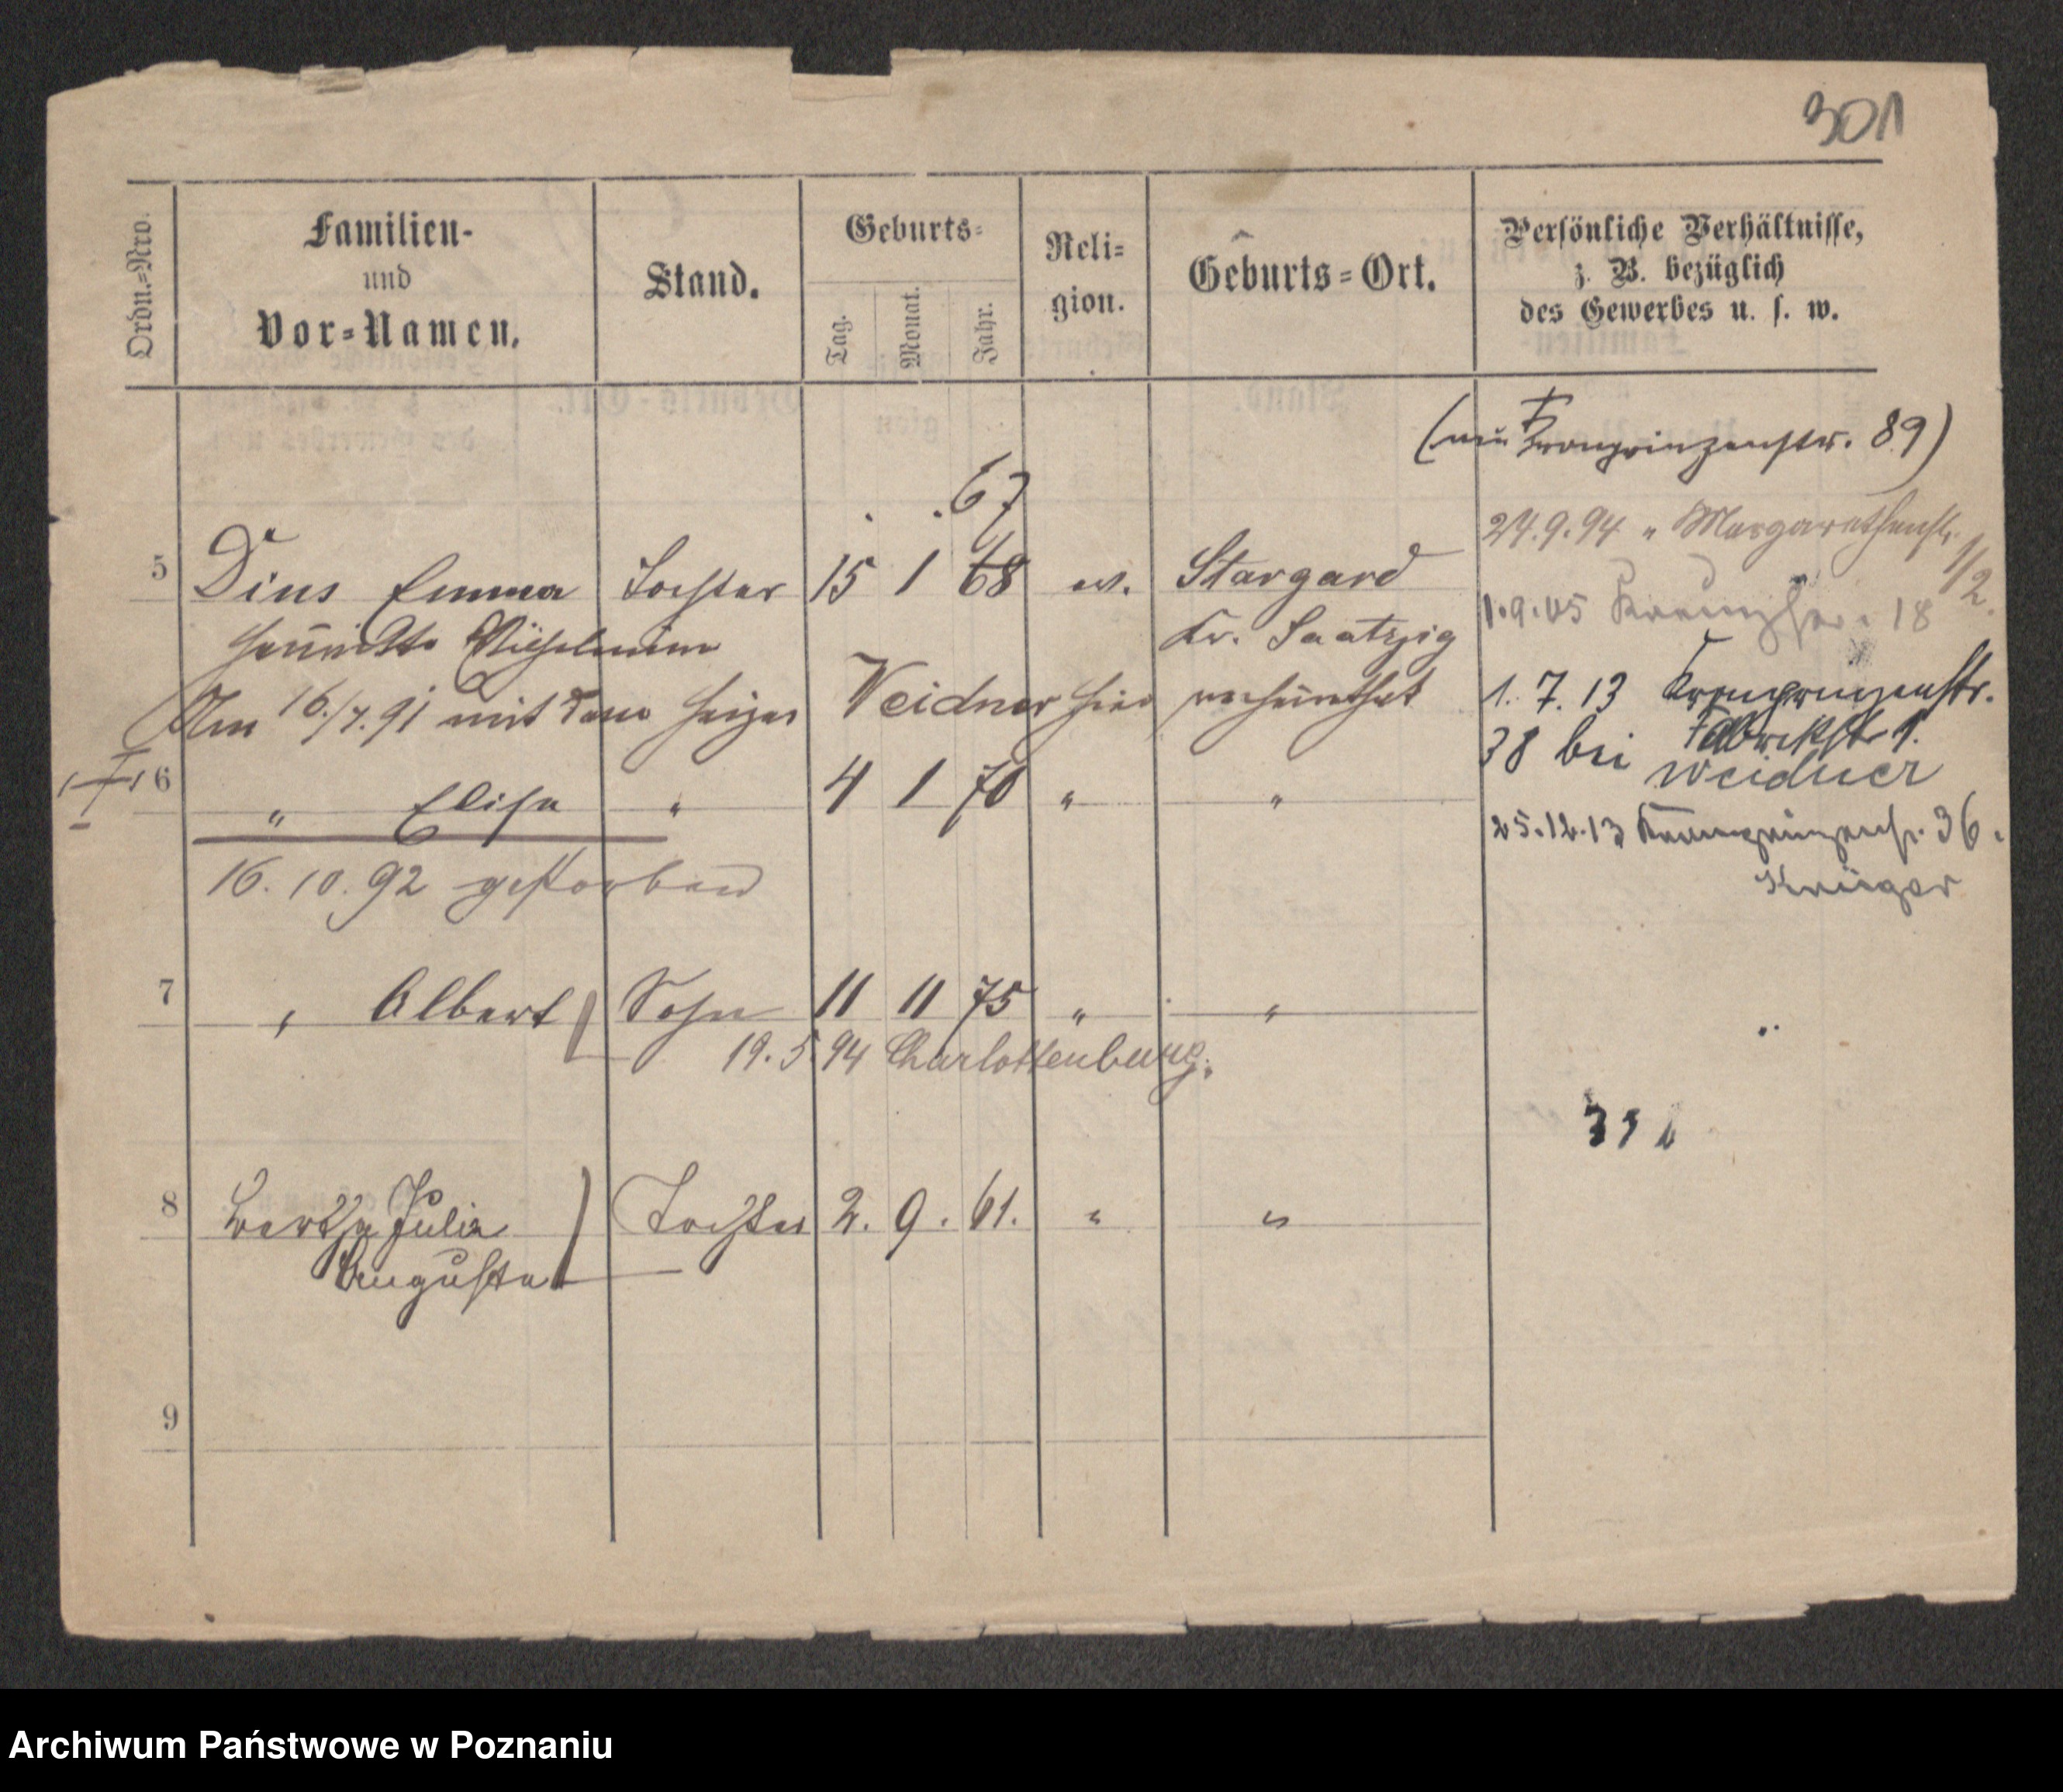 301
Ordn.=Nro.
Familien-
und
Vor=Namen.
Stand.
Geburts=
Tag.
Monat.
Jahr.
Reli=
gion.
Geburts=Ort.
Persönliche Verhältnisse,
z. B. bezüglich
des Gewerbes u. s. w.
Kronprinzenstr. 89)
67
24.9.94 " Margarethenstr.
1/2.
5 Dius Emma Tochter 15 1 68 ev. Stargard
1.9.05 18
Henriette Wilhelmine Kr. Saatzig
Am 16./7.91 mit dem Heizer Weidner hier verheirathet
1. 7. 13 Kronprinzenstr.
38 bei Fabrikstr 1.
Weidner
6 " Elise " 4 1 70 " "
25.12.13 Kronprinzenstr. 36.
Krüger
16. 10. 92 gestorben
7 " Albert Sohn 11 11 75 " "
19. 5. 94 Charlottenburg.
8 Bertha Julia Tochter 2. 9. 61. " "
Auguste
9
Archiwum Państwowe w Poznaniu